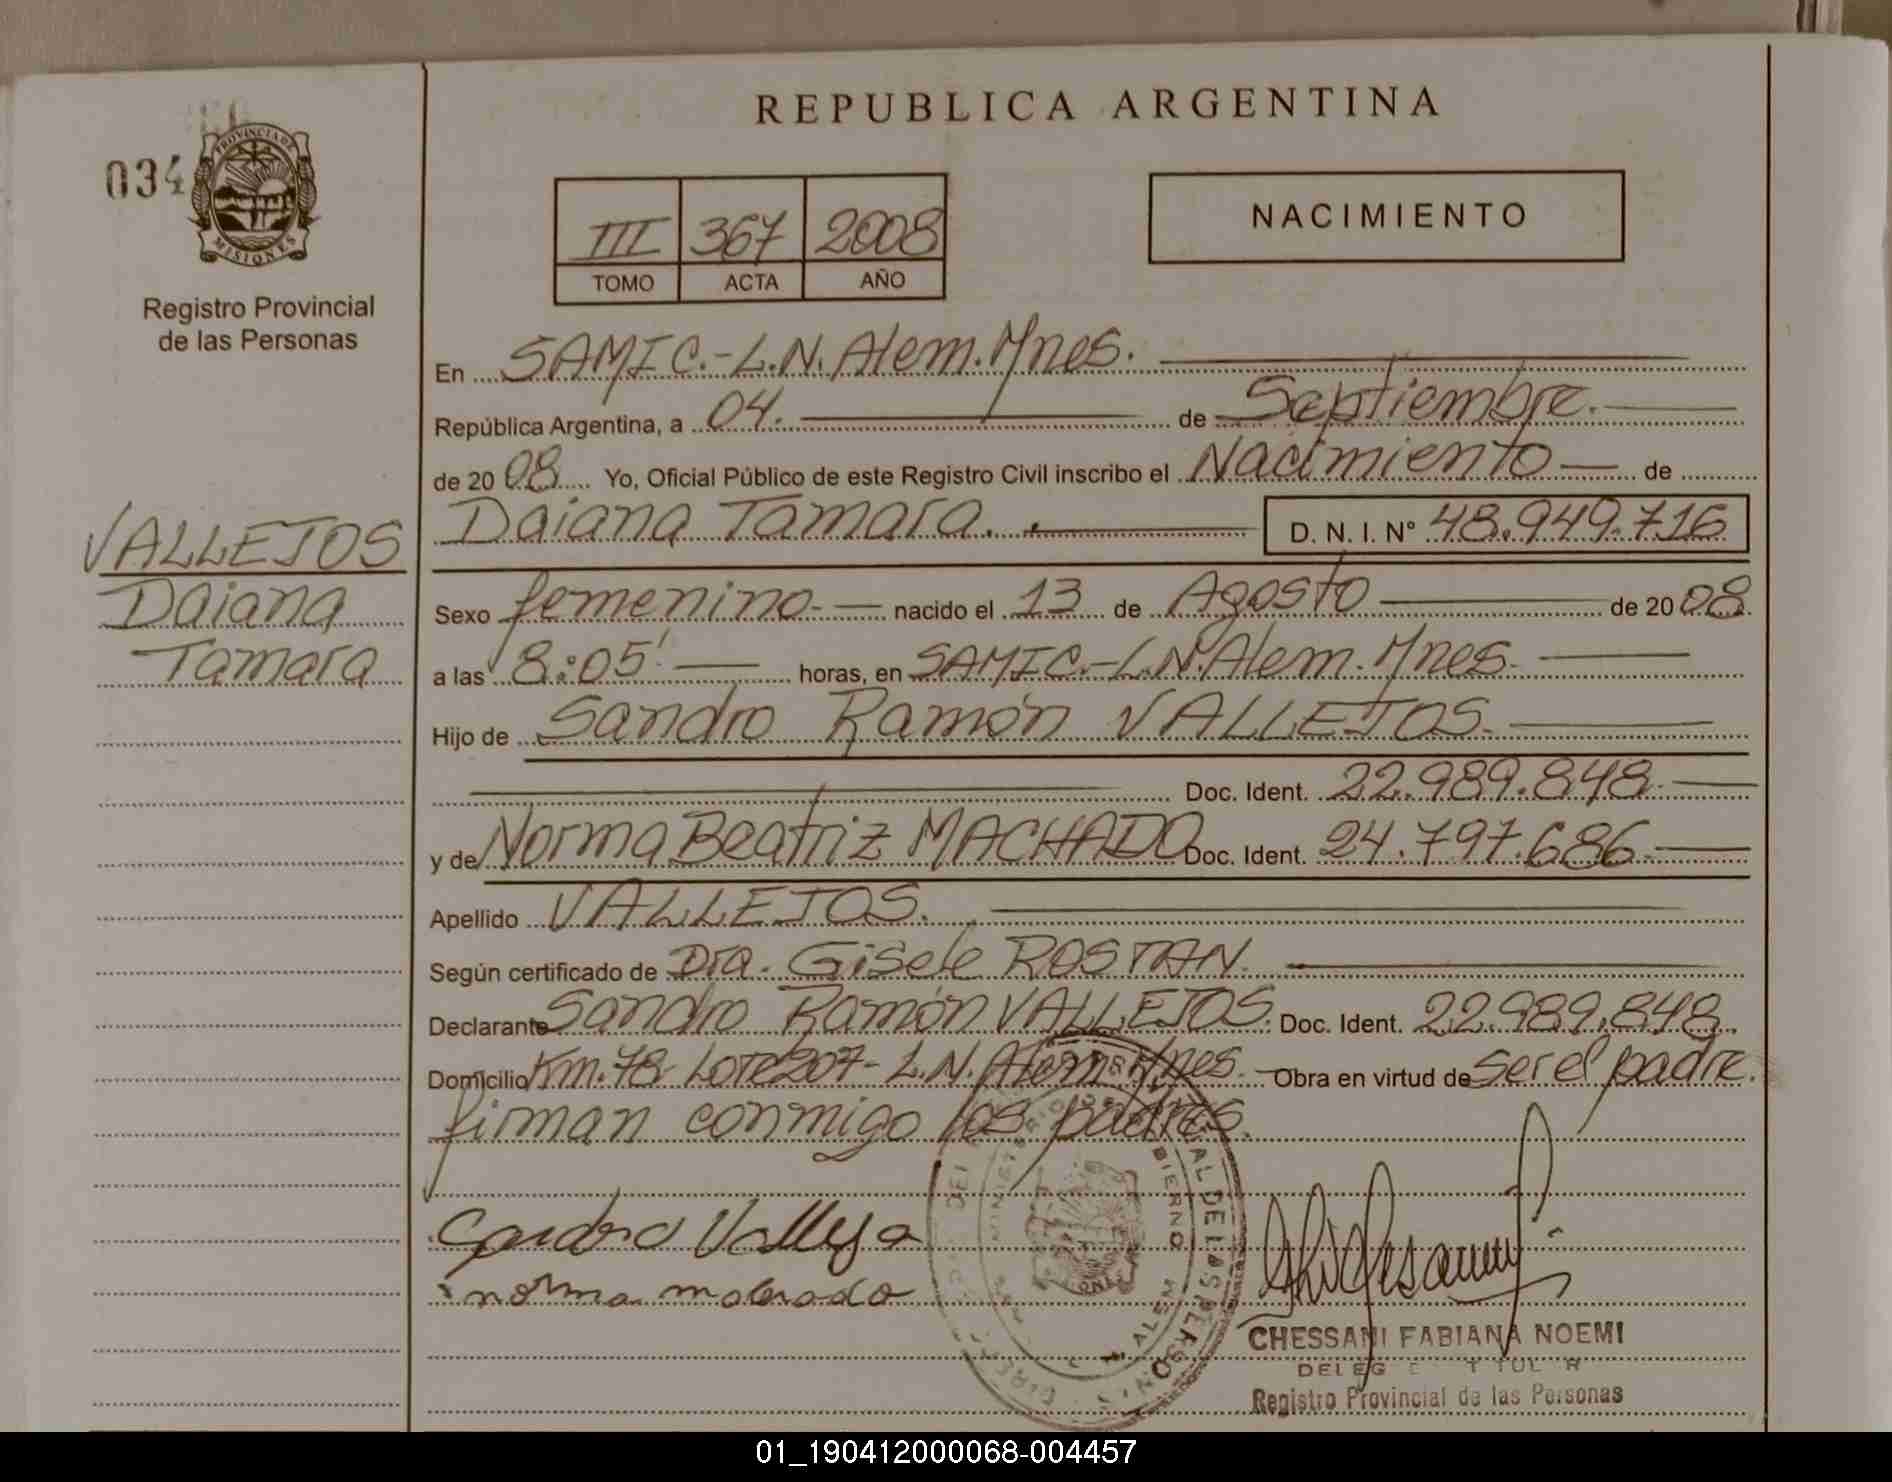 REPUBLICA ARGENTINA
034
PROVINCIA DE
MISIONES
Registro Provincial
de las Personas
III 367 2008
TOMO ACTA AÑO
NACIMIENTO
En SAMIC.-L.N. Alem. Mnes.
República Argentina, a 04. de Septiembre.
de 2008 Yo, Oficial Público de este Registro Civil inscribo el Nacimiento de
Daiana Tamara. D. N. I. Nº 48.949.716
VALLEJOS
Daiana
Tamara
Sexo femenino.- nacido el 13 de Agosto de 2008.
a las 8:05' horas, en SAMIC.-L.N. Alem. Mnes.
Hijo de Sandro Ramón VALLEJOS.
Doc. Ident. 22.989.848.
y de Norma Beatriz MACHADO Doc. Ident. 24.797.686.
Apellido VALLEJOS.
Según certificado de Dra. Gisele ROSTAN.
Declarante Sandro Ramón VALLEJOS. Doc. Ident. 22.989.848.
Domicilio Km. 78- Lote 207- L.N. Alem Mnes. Obra en virtud de ser el padre.
firman conmigo los padres.
Sandro Vallejo
norma machado
CHESSANI FABIANA NOEMI
Registro Provincial de las Personas
01_190412000068-004457